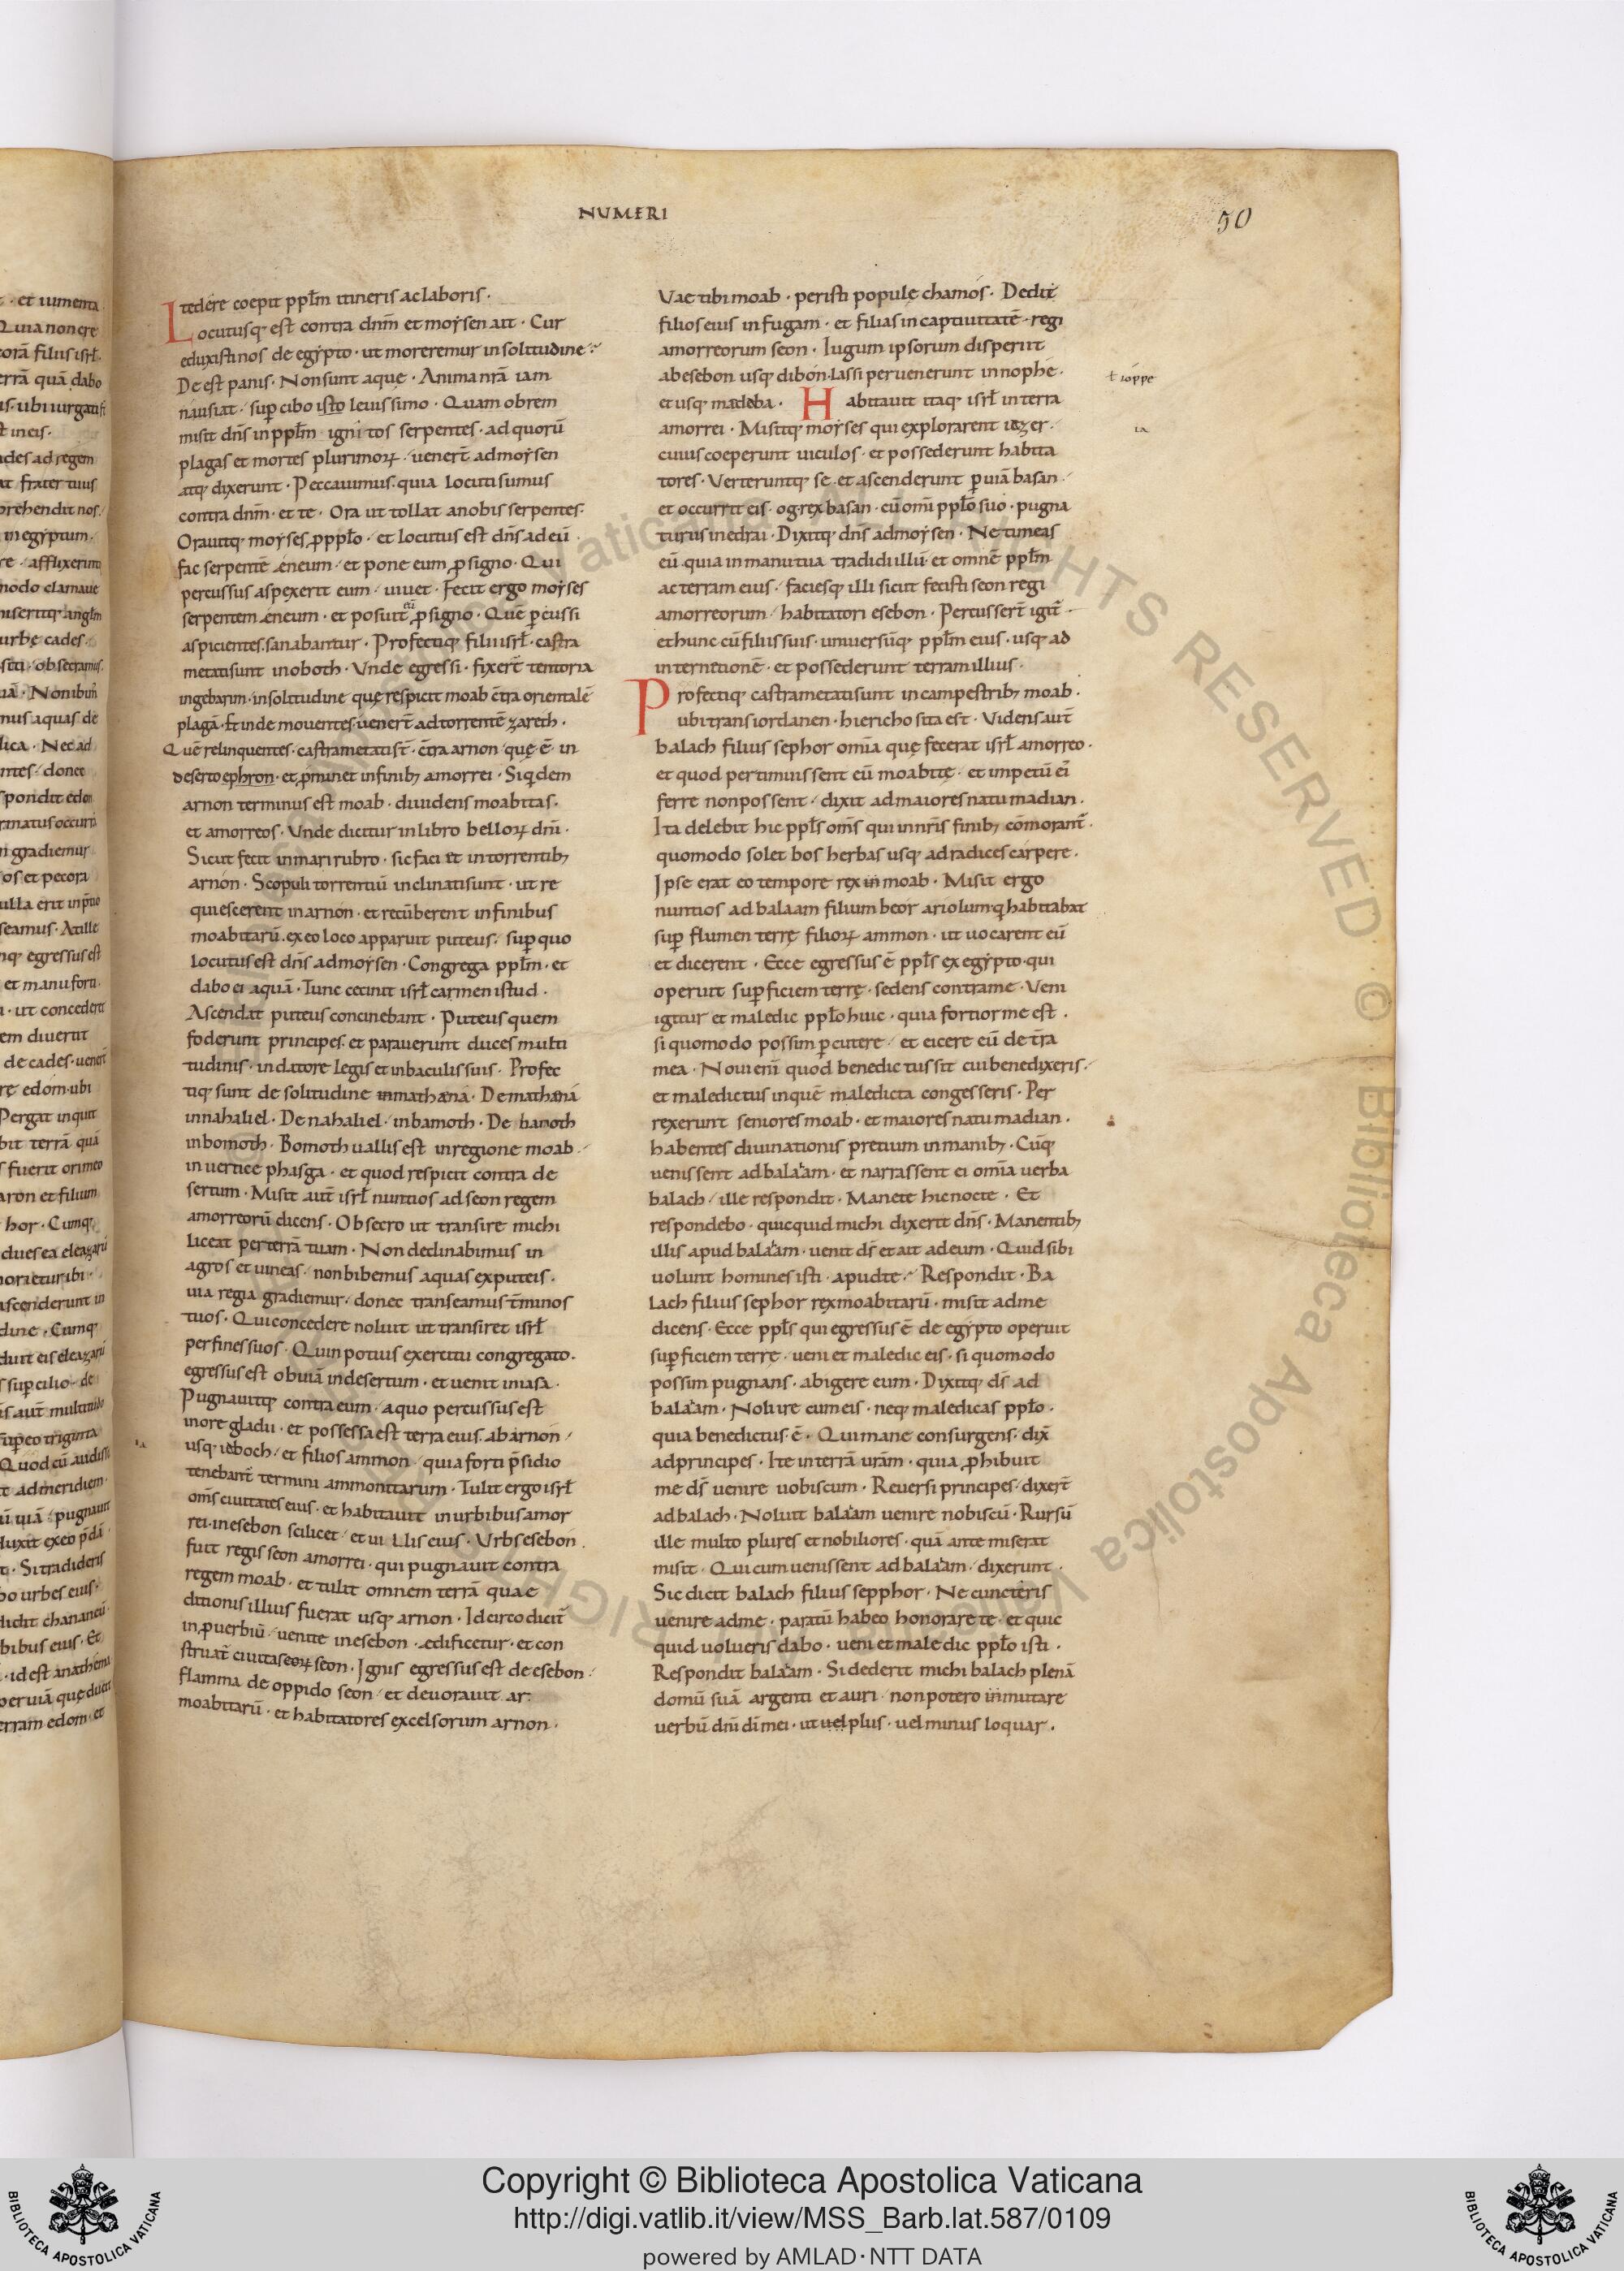 NUMERI
50
tedere coepit pplm itineris ac laboris·
Locutusq; est contra dnm et moysen ait· Cur
eduxisti nos de egypto· ut moreremur in solitudine?
De est panis· Non sunt aque· Anima nrā iam
nausiat· sup cibo isto leuissimo· Quam obrem
misit dns in pplm ignitos serpentes· ad quorū
plagas et mortes plurimoꝝ· uenert̄ ad moysen
atq; dixerunt· Peccauimus· quia locuti sumus
contra dnm· et te· Ora ut tollat a nobis serpentes·
Orauitq; moyses p̱ pplo· et locutus est dns ad eū·
fac serpentē ęneum· et pone eum p̱ signo· Qui
percussus aspexerit eum· uiuet· Fecit ergo moyses
serpentem ęneum· et posuit eū p̱ signo· Quē pcussi
aspicientes· sanabantur· Profectiq; filii isrł· castra
metati sunt in oboth· Vnde egressi· fixert̄ tentoria
ingebarim· in solitudine quę respicit moab ctra orientalē
plagā· Et inde mouentes· uenert̄ ad torrentē zareth·
Quē relinquentes· castra metati st̄· ctra arnon quę ē in
deserto ephron· et pminet in finib; amorrei· Siqdem
arnon terminus est moab· diuidens moabitas·
et amorreos· Vnde dicitur in libro belloꝝ dni·
Sicut fecit in mari rubro· sic faci et in torrentib;
arnon· Scopuli torrentiū inclinati sunt· ut re
quiescerent in arnon· et recūberent in finibus
moabitarū· ex eo loco apparuit puteus· sup quo
locutus est dns ad moysen· Congrega pplm· et
dabo ei aquā· Tunc cecinit isrł carmen istud·
Ascendat puteus concinebant· Puteus quem
foderunt principes· et parauerunt duces multi
tudinis· in datore legis et in baculis suis· Profec
tiq; sunt de solitudine in mathana· De mathana
in nahaliel· De nahaliel· in bamoth· De bamoth
in bomoth· Bomoth uallis est in regione moab·
in uertice phasga· et quod respicit contra de
sertum· Misit aut̄ isrł nuntios ad seon regem
amorreorū dicens· Obsecro ut transire michi
liceat per terrā tuam· Non declinabimus in
agros et uineas· non bibemus aquas ex puteis·
uia regia gradiemur· donec transeamus tminos
tuos· Qui concedere noluit ut transiret isrł
per fines suos· Quin potius exercitu congregato·
egressus est obuiā in desertum· et uenit in iasa·
Pugnauitq; contra eum· a quo percussus est
inore gladii· et possessa est terra eius· ab arnon
usq; ieboch· et filios ammon· quia forti psidio
ia
tenebant̄ termini ammonitarum· Tulit ergo isrł
oms ciuitates eius· et habitauit in urbibus amor
rei· in esebon scilicet· et ui llis eius· Vrbs esebon
fuit regis seon amorrei· qui pugnauit contra
regem moab· et tulit omnem terrā quae
ditionis illius fuerat usq; arnon· Idcirco dicit̄
in puerbiū· uenite in esebon· ędificetur· et con
struat̄ ciuitas eoꝝ seon· Ignis egressus est de esebon·
flamma de oppido seon· et deuorauit ar·
moabitarū· et habitatores excelsorum arnon·
Vae tibi moab· peristi popule chamos· Dedit
filios eius in fugam· et filias in captiuitatē· regi
amorreorum seon· Iugum ipsorum disperiit
ab esebon usq; dibon· lassi peruenerunt in nophe·
ł ioppe
et usq; madeba· Habitauit itaq; isrł in terra
amorrei· Misitq; moyses qui explorarent iezer·
ia
cuius coeperunt uiculos· et possederunt habita
tores· Verteruntq; se· et ascenderunt p uiā basan·
et occurrit eis· og rex basan· cū omi pplo suo· pugna
turus in edrai· Dixitq; dns ad moysen· Ne timeas
eū· quia in manu tua tradidi illū· et omnē pplm
ac terram eius· faciesq; illi sicut fecisti seon regi
amorreorum· habitatori esebon· Percussert̄ igit̄
et hunc cū filiis suis· uniuersūq; pplm eius· usq; ad
internetionē· et possederunt terram illius·
Profectiq; castra metati sunt in campestrib; moab·
ubi trans iordanen· hiericho sita est· Videns aut̄
balach filius sephor omīa quę fecerat isrł amorreo·
et quod pertimuissent eū moabitę· et impetū ei
ferre non possent· dixit ad maiores natu madian·
Ita delebit hic ppls oms qui in nris finib; cōmorant̄·
quomodo solet bos herbas usq; ad radices carpere·
Ipse erat eo tempore rex in moab· Misit ergo
nuntios ad balaam filium beor ariolum q habitabat
sup flumen terrę filioꝝ ammon· ut uocarent eū
et dicerent· Ecce egressus ē ppls ex egypto· qui
operuit supficiem terrę· sedens contra me· Veni
igitur et maledic pplo huic· quia fortior me est·
si quomodo possim pcutere· et eicere eū de tra
mea· Noui eni quod benedictus sit cui benedixeris·
et maledictus in quē maledicta congesseris· Per
rexerunt seniores moab· et maiores natu madian·
habentes diuinationis pretium in manib;· Cūq;
uenissent ad balaam· et narrassent ei omīa uerba
balach· ille respondit· Manete hic nocte· Et
respondebo· quicquid michi dixerit dns· Manentib;
illis apud balaam· uenit ds et ait ad eum· Quid sibi
uolunt homines isti· apud te? Respondit· Ba
lach filius sephor rex moabitarū· misit ad me
dicens· Ecce ppls qui egressus ē de egypto operuit
supficiem terrę· ueni et maledic eis· si quomodo
possim pugnans· abigere eum· Dixitq; ds ad
balaam· Noli ire cum eis· neq; maledicas pplo·
quia benedictus· ē· Qui mane consurgens· dix̄
ad principes· Ite in terrā urām· quia p̱hibuit
me ds uenire uobiscum· Reuersi principes· dixert̄
ad balach· Noluit balaam uenire nobiscū· Rursū
ille multo plures et nobiliores· quā ante miserat
misit· Qui cum uenissent ad balaam· dixerunt·
Sic dicit balach filius sepphor· Ne cuncteris
uenire ad me· paratū habeo honorare te· et quic
quid uolueris dabo· ueni et male dic pplo isti·
Respondit balaam· Si dederit michi balach plenā
domū suā argenti et auri· non potero inmutare
uerbū dni di mei· ut uel plus· uel minus loquar·
Copyright © Biblioteca Apostolica Vaticana
http://digi.vatlib.it/view/MSS_Barb.lat.587/0109
powered by AMLAD·NTT DATA
BIBLIOTECA APOSTOLICA VATICANA
BIBLIOTECA APOSTOLICA VATICANA